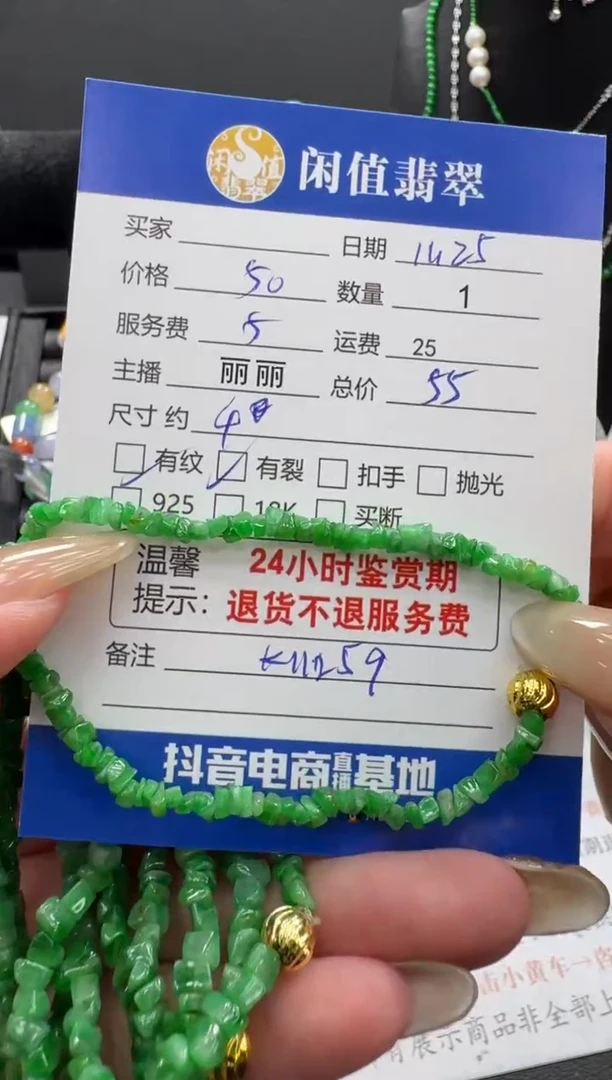 闲值翡翠
闲值翡翠
买家 日期 1125
价格 50 数量 1
服务费 5 运费 25
主播 丽丽 总价 55
尺寸 约 4
有纹 有裂 扣手 抛光
925 18K 买断
温馨提示: 24小时鉴赏期
退货不退服务费
备注
抖音电商直播基地
击小黄车一
有展示商品非全部